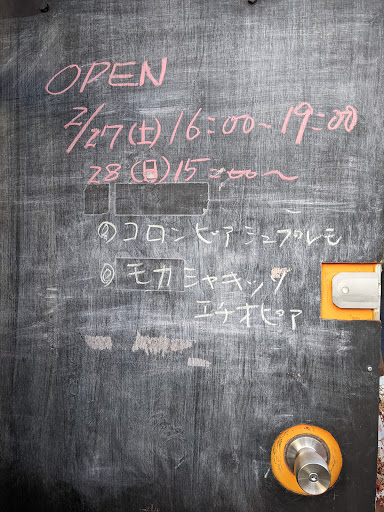 OPEN
2/27(土)16:00~19:00
28(日)15:00~
コロンビアシュプレモ
モカシャキッソ
エチオピア